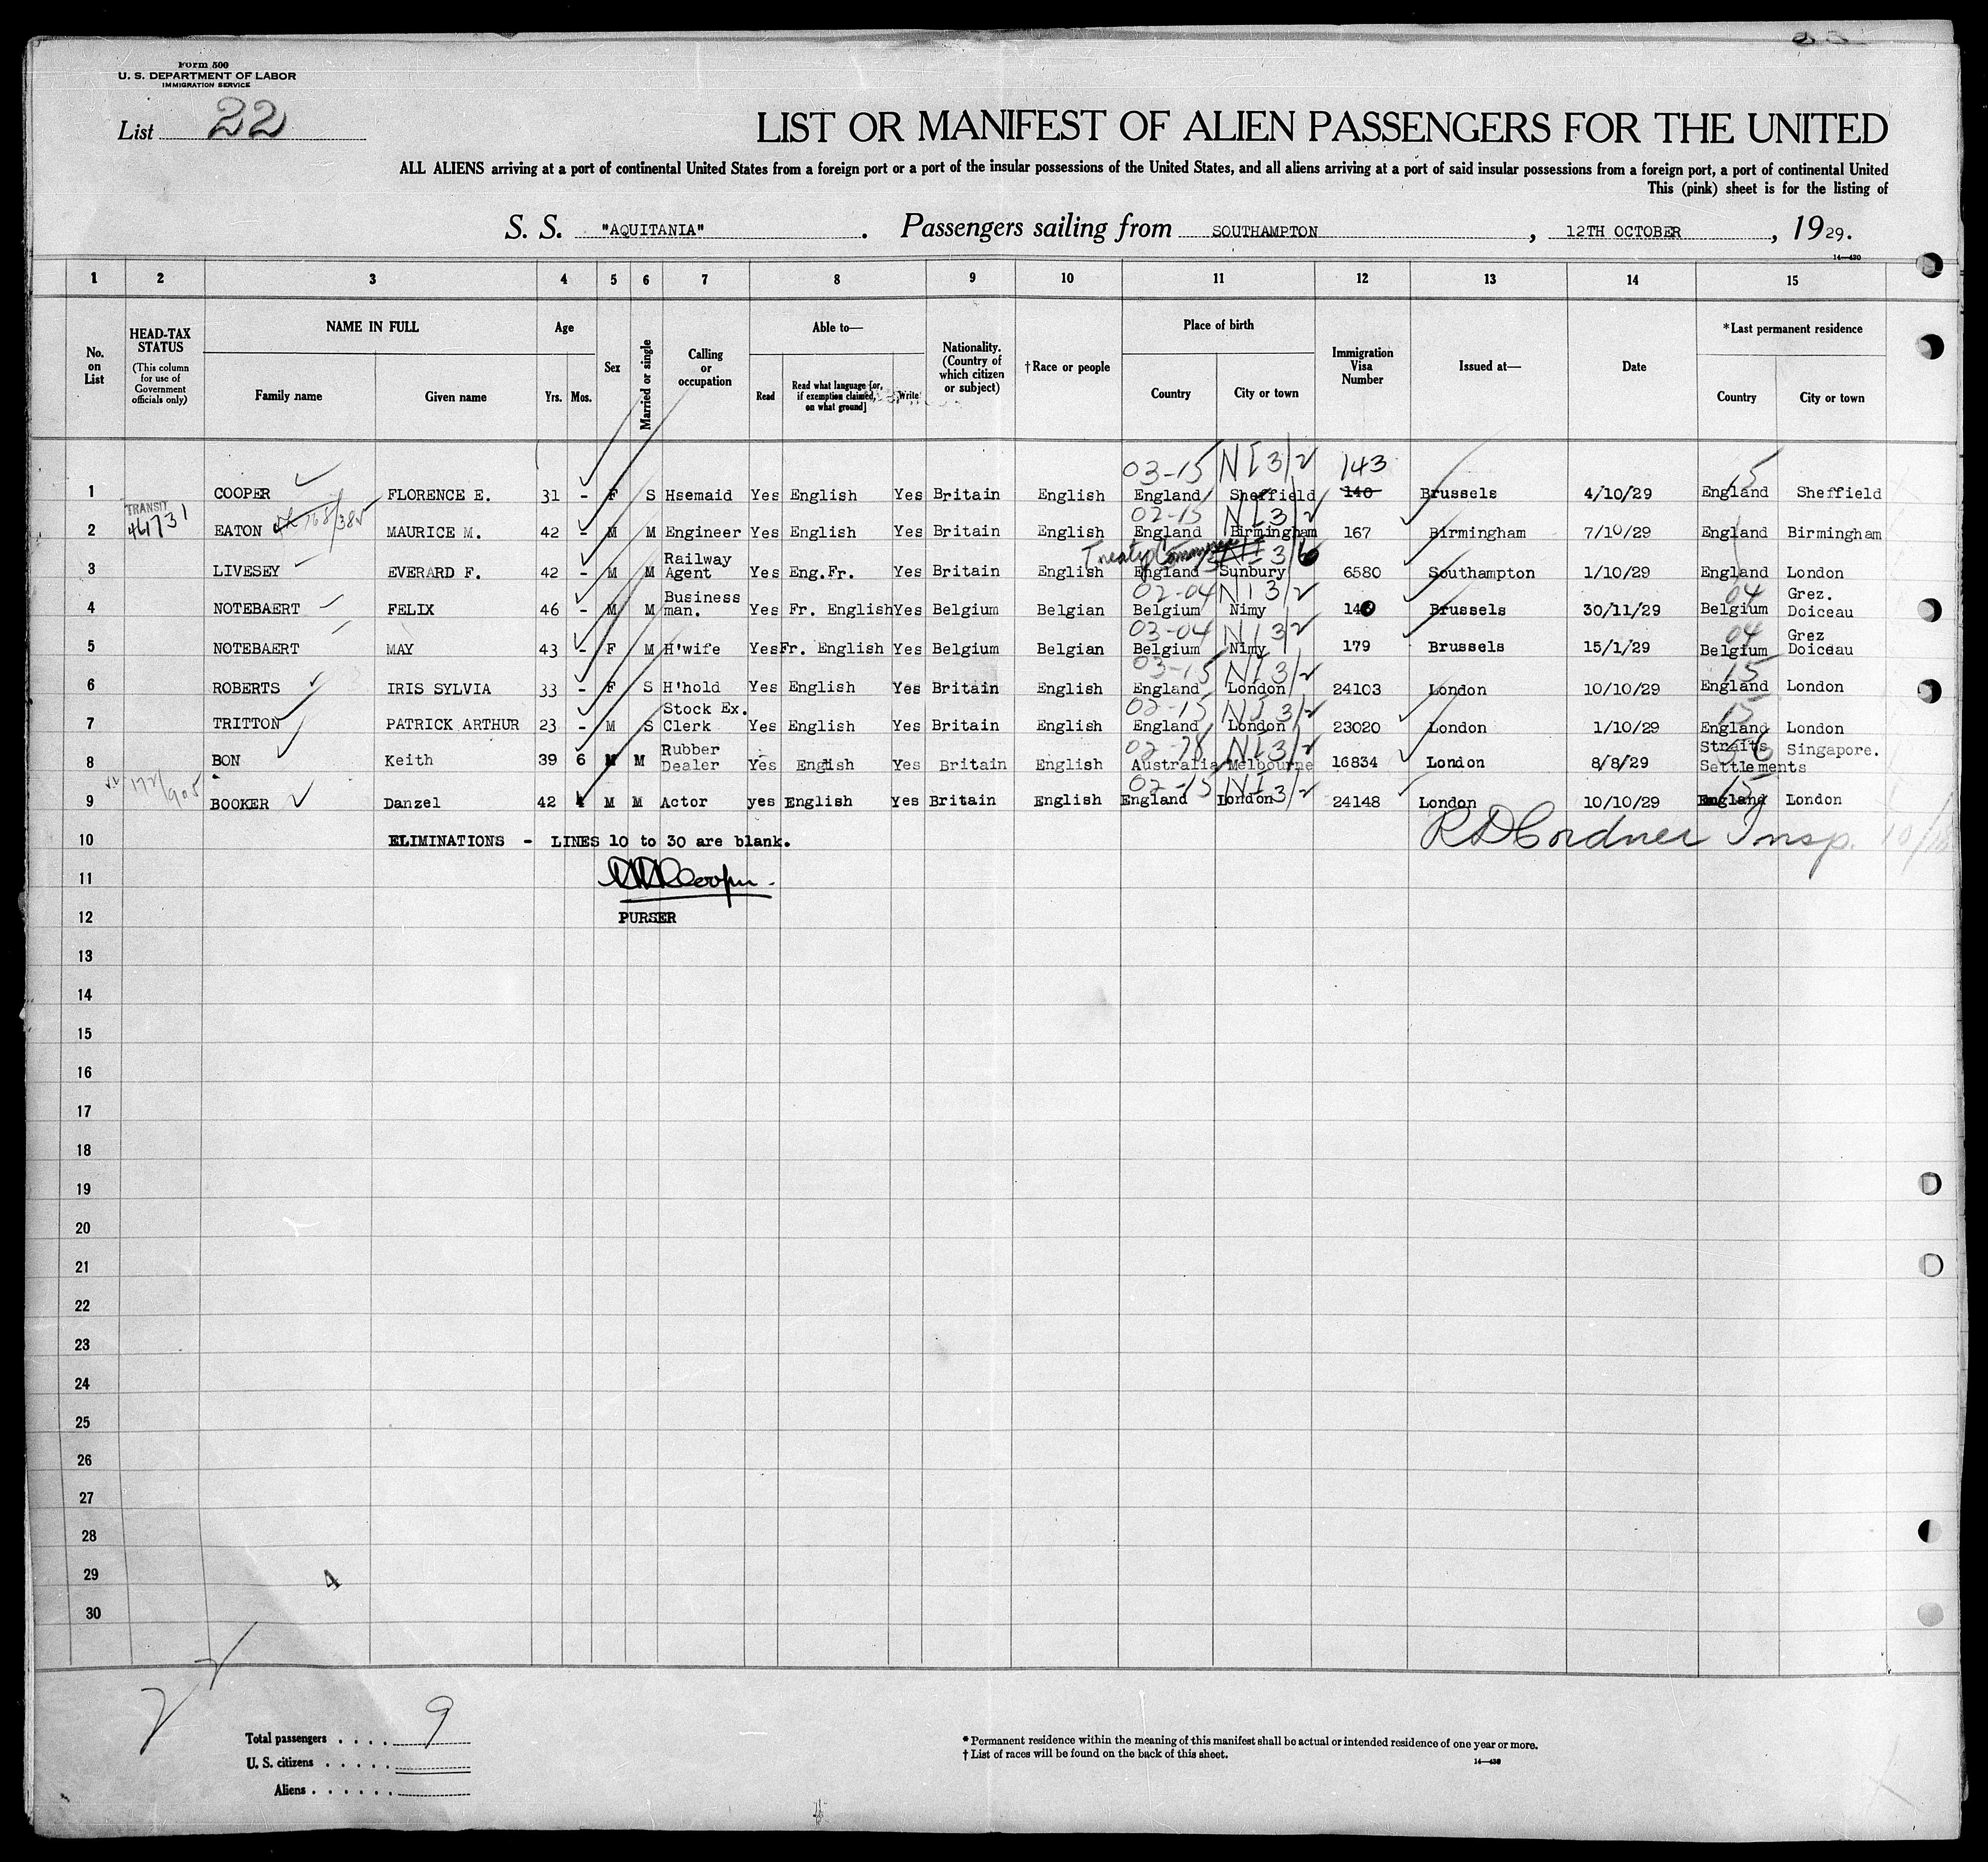 Form 500
U. S. DEPARTMENT OF LABOR
IMMIGRATION SERVICE
List 22
LIST OR MANIFEST OF ALIEN PASSENGERS FOR THE UNITED
ALL ALIENS arriving at a port of continental United States from a foreign port or a port of the insular possessions of the United States, and all aliens arriving at a port of said insular possessions from a foreign port, a port of continental United
This (pink) sheet is for the listing of
S. S. "AQUITANIA". Passengers sailing from SOUTHAMPTON, 12TH OCTOBER, 1929.
14—430
1 2 3 4 5 6 7 8 9 10 11 12 13 14 15
No. on List
HEAD-TAX STATUS
(This column for use of Government officials only)
NAME IN FULL
Family name Given name
Age
Yrs. Mos.
Sex
Married or single
Calling or occupation
Able to—
Read
Read what language [or, if exemption claimed, on what ground]
Write
Nationality. (Country of which citizen or subject)
†Race or people
Place of birth
Country City or town
Immigration Visa Number
Issued at—
Date
*Last permanent residence
Country City or town
03-15 N I 3/2 143 15
1 COOPER FLORENCE E. 31 - F S Hsemaid Yes English Yes Britain English England Sheffield 140 Brussels 4/10/29 England Sheffield
TRANSIT 02-15 N I 3/2
2 EATON MAURICE M. 42 - M M Engineer Yes English Yes Britain English England Birmingham 167 Birmingham 7/10/29 England Birmingham
Treaty Commerce 3/6
3 LIVESEY EVERARD F. 42 - M M Railway Agent Yes Eng.Fr. Yes Britain English England Sunbury 6580 Southampton 1/10/29 England London
02-04 N I 3/2 04
4 NOTEBAERT FELIX 46 - M M Business man. Yes Fr. English Yes Belgium Belgian Belgium Nimy Brussels 30/11/29 Belgium Grez. Doiceau
03-04 N I 3/2 04
5 NOTEBAERT MAY 43 - F M H'wife Yes Fr. English Yes Belgium Belgian Belgium Nimy 179 Brussels 15/1/29 Belgium Grez Doiceau
03-15 N I 3/2 15
6 ROBERTS IRIS SYLVIA 33 - F S H'hold Yes English Yes Britain English England London 24103 London 10/10/29 England London
02-15 N I 3/2 15
7 TRITTON PATRICK ARTHUR 23 - M S Stock Ex. Clerk Yes English Yes Britain English England London 23020 London 1/10/29 England London
02-78 N I 3/2
8 BON Keith 39 6 M M Rubber Dealer Yes English Yes Britain English Australia Melbourne 16834 London 8/8/29 Straits Settlements Singapore.
02-15 N I 3/2 15
9 BOOKER Danzel 42 M M Actor yes English Yes Britain English England London 24148 London 10/10/29 England London
10 ELIMINATIONS - LINES 10 to 30 are blank. R D Cordner Insp.
11 Cooper
12 PURSER
13
14
15
16
17
18
19
20
21
22
23
24
25
26
27
28
29 4
30
Total passengers . . . . 9
U. S. citizens . . . . .
Aliens . . . . . .
* Permanent residence within the meaning of this manifest shall be actual or intended residence of one year or more.
† List of races will be found on the back of this sheet.
14—430